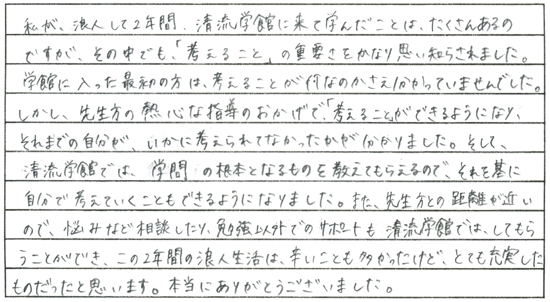 私が、浪人して2年間、清流学館に来て学んだことは、たくさんあるの
ですが、その中でも、「考えること」の重要さをかなり思い知らされました。
学館に入った最初の方は、考えることが何なのかさえ分かっていませんでした。
しかし、先生方の熱心な指導のおかげで、「考えること」ができるようになり、
それまでの自分が、いかに考えられてなかったかが分かりました。そして、
清流学館では、学問の根本となるものを教えてもらえるので、それを基に
自分で考えていくこともできるようになりました。また、先生方との距離が近い
ので、悩みなど相談したり、勉強以外でのサポートも清流学館では、してもら
うことができ、この2年間の浪人生活は、辛いことも多かったけど、とても充実した
ものだったと思います。本当にありがとうございました。